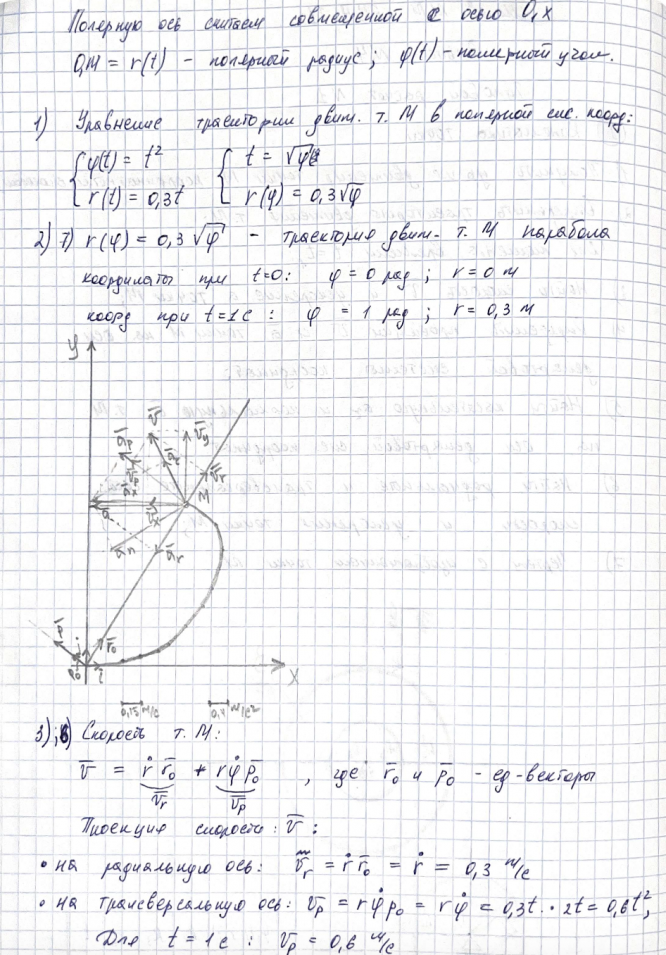 Полярную ось считаем совмещенной с осью O₁x
O₁M = r(t) - полярный радиус; φ(t) - полярный угол.
1) Уравнение траектории движ. т. M в полярной сис. коорд:
{ φ(t) = t² { t = √φ
{ r(t) = 0,3t { r(φ) = 0,3√φ
2) 7) r(φ) = 0,3√φ - траектория движ. т. M парабола
координаты при t=0: φ = 0 рад; r = 0 м
коорд при t=1c: φ = 1 рад; r = 0,3 м
y
v̄ v̄y
āp āτ v̄r
v̄p
āx M
ā v̄x
ān ār
p̄ r̄₀
p̄₀ j̄ ī x
0,15 м/с 0,4 м/с²
3);6) Скорость т. M:
v̄ = ṙ r̄₀ + rφ̇ p̄₀ , где r̄₀ и p̄₀ - ед-векторы
v̄r v̄p
Проекция скорости v̄:
• на радиальную ось: v̄r = ṙ r̄₀ = ṙ = 0,3 м/с
• на трансверсальную ось: v̄p = rφ̇ p₀ = rφ̇ = 0,3t · 2t = 0,6t²,
Для t = 1c: v̄p = 0,6 м/с